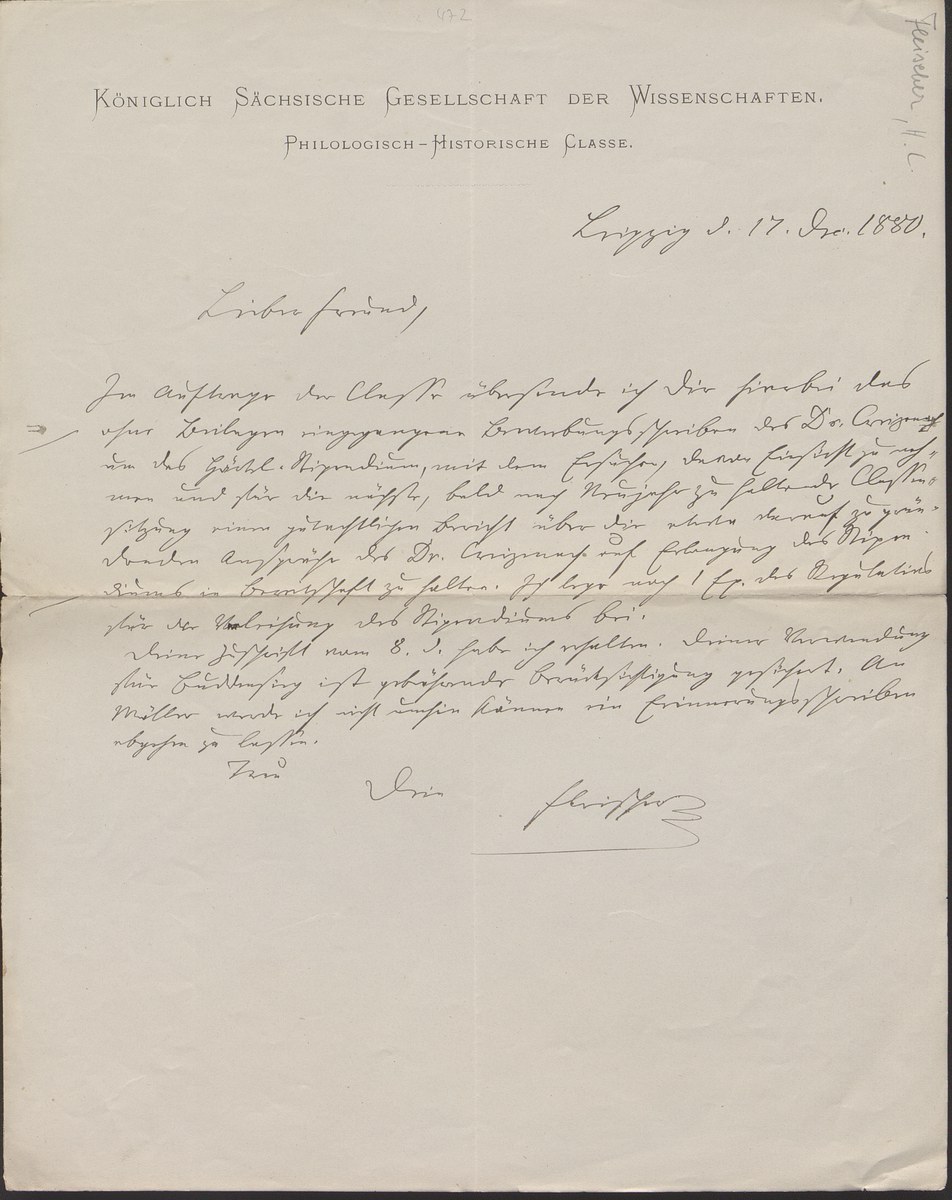 472
Fleischer, H. L.
Königlich Sächsische Gesellschaft der Wissenschaften.
Philologisch-Historische Classe.
Leipzig d. 17. Dec. 1880.
Lieber Freund,
Im Auftrage der Classe übersende ich Dir hierbei das
ohne Beilagen eingegangene Bewerbungsschreiben des Dr. Creizenach
um das Stipendium, mit dem Ersuchen, davon Einsicht zu neh-
men und für die nächste, bald nach Neujahr zu haltende Classen-
sitzung einen gutachtlichen Bericht über die etwa darauf zu grün-
denden Ansprüche des Dr. Creizenach auf Erlangung des Stipen-
diums in Bereitschaft zu halten. Ich lege noch 1 Ex. des Regulativs
für die Verleihung des Stipendiums bei.
Deine Zuschrift vom 8. d. habe ich erhalten. Deiner Verwendung
für Buddensieg ist gebührende Berücksichtigung gesichert. An
Möller werde ich nicht umhin können ein Erinnerungsschreiben
abgehen zu lassen.
Treu
Dein Fleischer